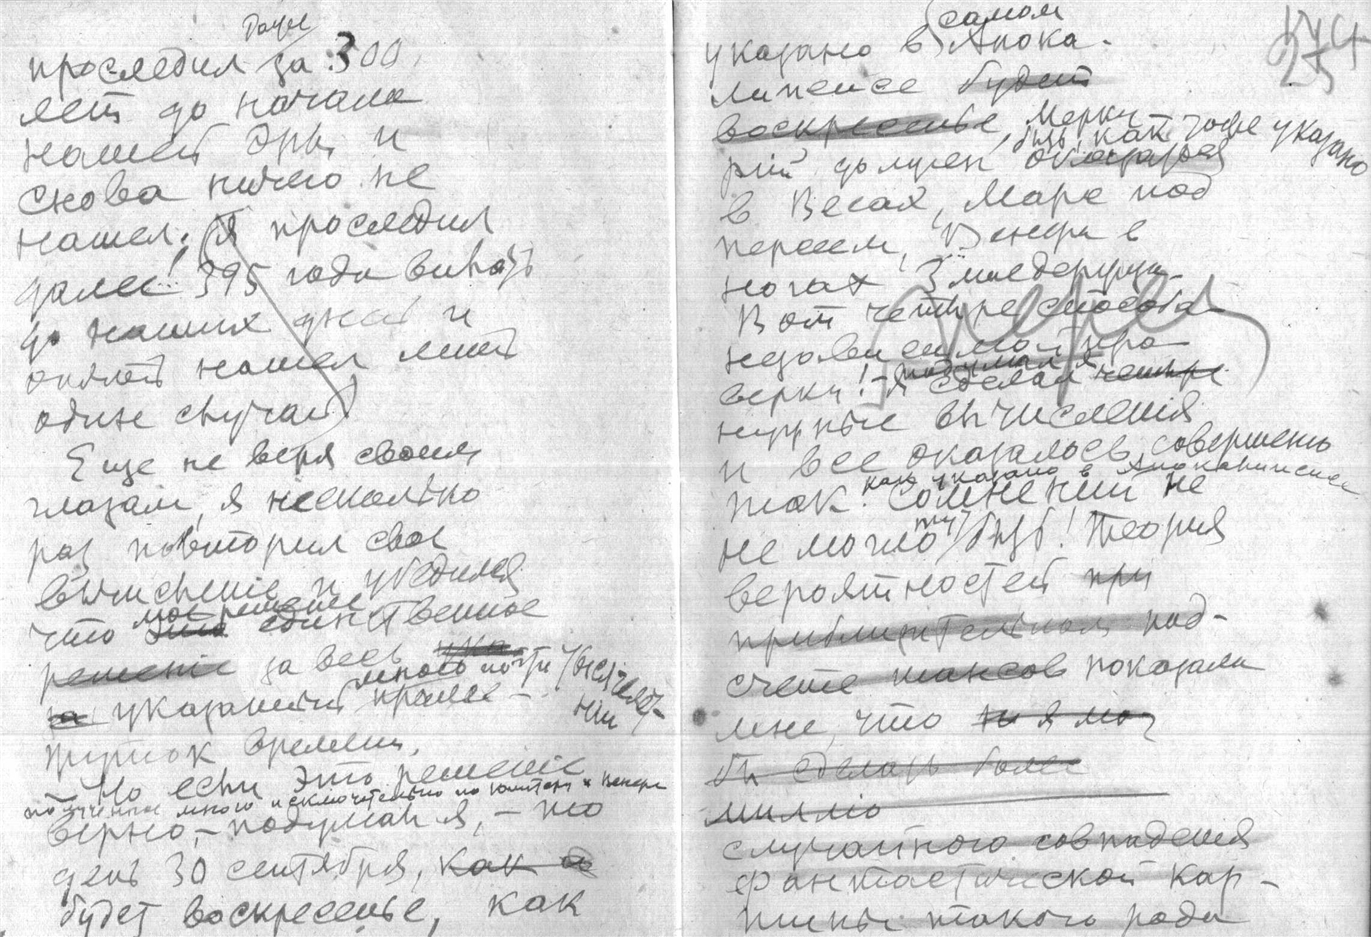 даже
проследил за 300
лет до начала
нашей эры и
снова ничего не
нашел; Я проследил
далее 395 года вплоть
до наших дней и
опять нашел лишь
один случай
Еще не веря своим
глазам, я несколько
раз повторил свое
вычисление и убедился
что это единственное
мое решение
решение за весь
мною почти тысячелет-
ний
указанный
промежуток времени.
Но если это решение
полученное мною исключительно по Юпитеру и
верно, – подумал я, – то
день 30 сентября, как
будет воскресенье, как
самом
указано в Апока-
липсисе будет
воскресенье, Мерку-
рий должен оказаться
быть, как тоже указано
в Весах, Марс под
Персеем, Венера в
ногах Змиедержца.
Вот четыре способа
независимой про-
верки! – подумал я
Я сделал четыре
нужные вычисления
и все оказалось совершенно
так как указано в Апокалипсисе
Сомнений не
не могло тут быть! Теория
вероятностей при
приблизительном под-
счете шансов показала
мне, что я мог
бы сделать более
миллио
случайного совпадения
фантастической кар-
тины такого рода
275